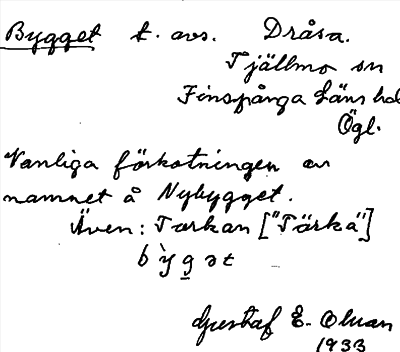 Bygget t. avs. Dråsa.
Tjällmo sn
Finspånga Läns hd
Ögl.
Vanliga förkortningen av
namnet å Nybygget.
Även: Torkan ["Tärka"]
bỳgət
Gustaf E. Olsson
1933